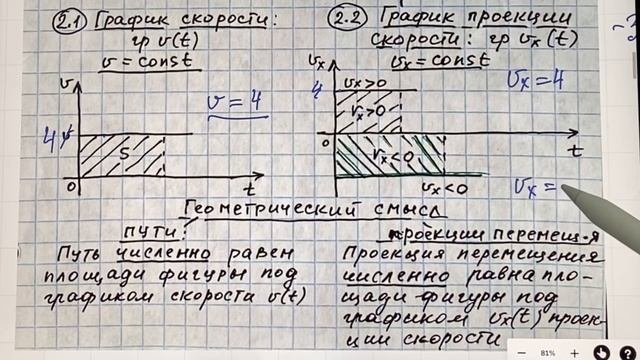 2.1 График скорости:
гр v(t)
v = const
v
4
v = 4
S
0
t
2.2 График проекции
скорости: гр vx(t)
vx = const
vx
4
vx>0
vx>0
vx = 4
vx<0
0
t
vx<0
vx =
Геометрический смысл
пути:
Путь численно равен
площади фигуры под
графиком скорости v(t)
проекции перемещ-я
Проекция перемещения
численно равна пло-
щади фигуры под
графиком vx(t) проек-
ции скорости
81%